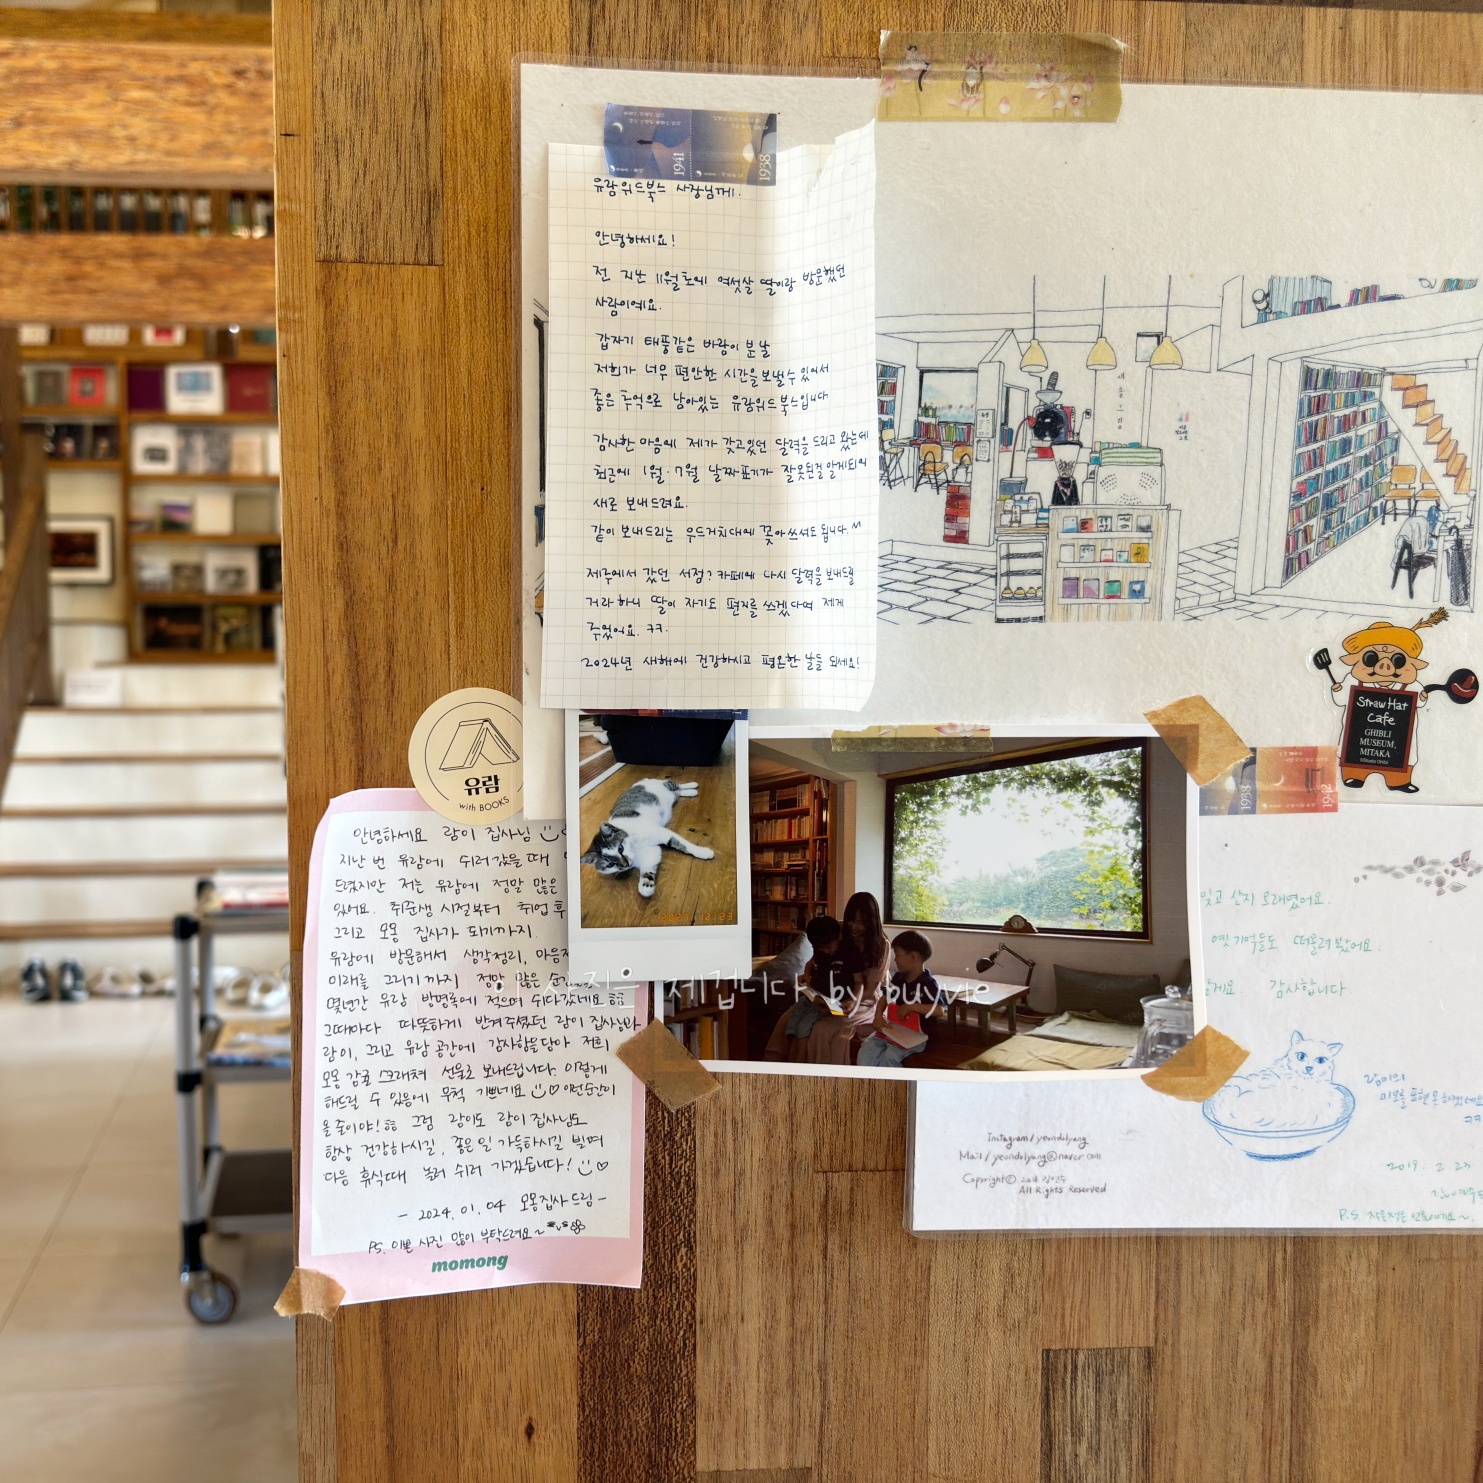 1941
1938
유람위드북스 사장님께.
안녕하세요!
전 지난 11월초에 여섯살 딸이랑 방문했던
사람이에요.
갑자기 태풍같은 바람이 분 날
저희가 너무 편안한 시간을 보낼 수 있어서
좋은 추억으로 남아있는 유람위드북스입니다
감사한 마음에 제가 갖고있던 달력을 드리고 왔는데
최근에 1월·7월 날짜표기가 잘못된걸 알게되어
새로 보내드려요.
같이 보내드리는 우드거치대에 꽂아 쓰셔도 됩니다.^^
제주에서 갔던 서점? 카페에 다시 달력을 보내드릴
거라 하니 딸이 자기도 편지를 쓰겠다며 제게
주었어요. ㅋㅋ.
2024년 새해에 건강하시고 평온한 날들 되세요!
Straw Hat
Cafe
GHIBLI
MUSEUM,
MITAKA
유람
with BOOKS
안녕하세요 람이 집사님
지난 번 유람에 쉬러 갔을 때
드렸지만 저는 유람에 정말 많은
있어요. 취준생 시절부터 취업 후
그리고 모몽 집사가 되기까지.
유람에 방문해서 생각정리, 마음
미래를 그리기까지 정말 많은
몇년간 유람 방명록에 적으며 쉬다갔네요
그때마다 따뜻하게 반겨주셨던 람이 집사님과
람이, 그리고 유람 공간에 감사함을 담아 저희
모몽 감귤 스크래쳐 선물로 보내드립니다. 이렇게
해드릴 수 있음에 무척 기쁘네요 ♡ 이런순간이
올줄이야! 그럼 람이도 람이 집사님도
항상 건강하시길, 좋은 일 가득하시길 빌며
다음 휴식때 놀러 쉬러 가겠습니다! ♡
- 2024. 01. 04 모몽집사 드림 -
PS. 이쁜 사진 많이 부탁드려요~
momong
사진은 제겁니다 by buyvie
1938
1942
잊고 산지 오래였어요.
옛 기억들도 떠올려봤어요.
감사합니다.
람이의
미모를 표현 못하겠네요
ㅋㅋ
Instagram/yeondolyang
Mail/yeondolyang@naver.com
Copyrightⓒ
All Rights Reserved
P.S.